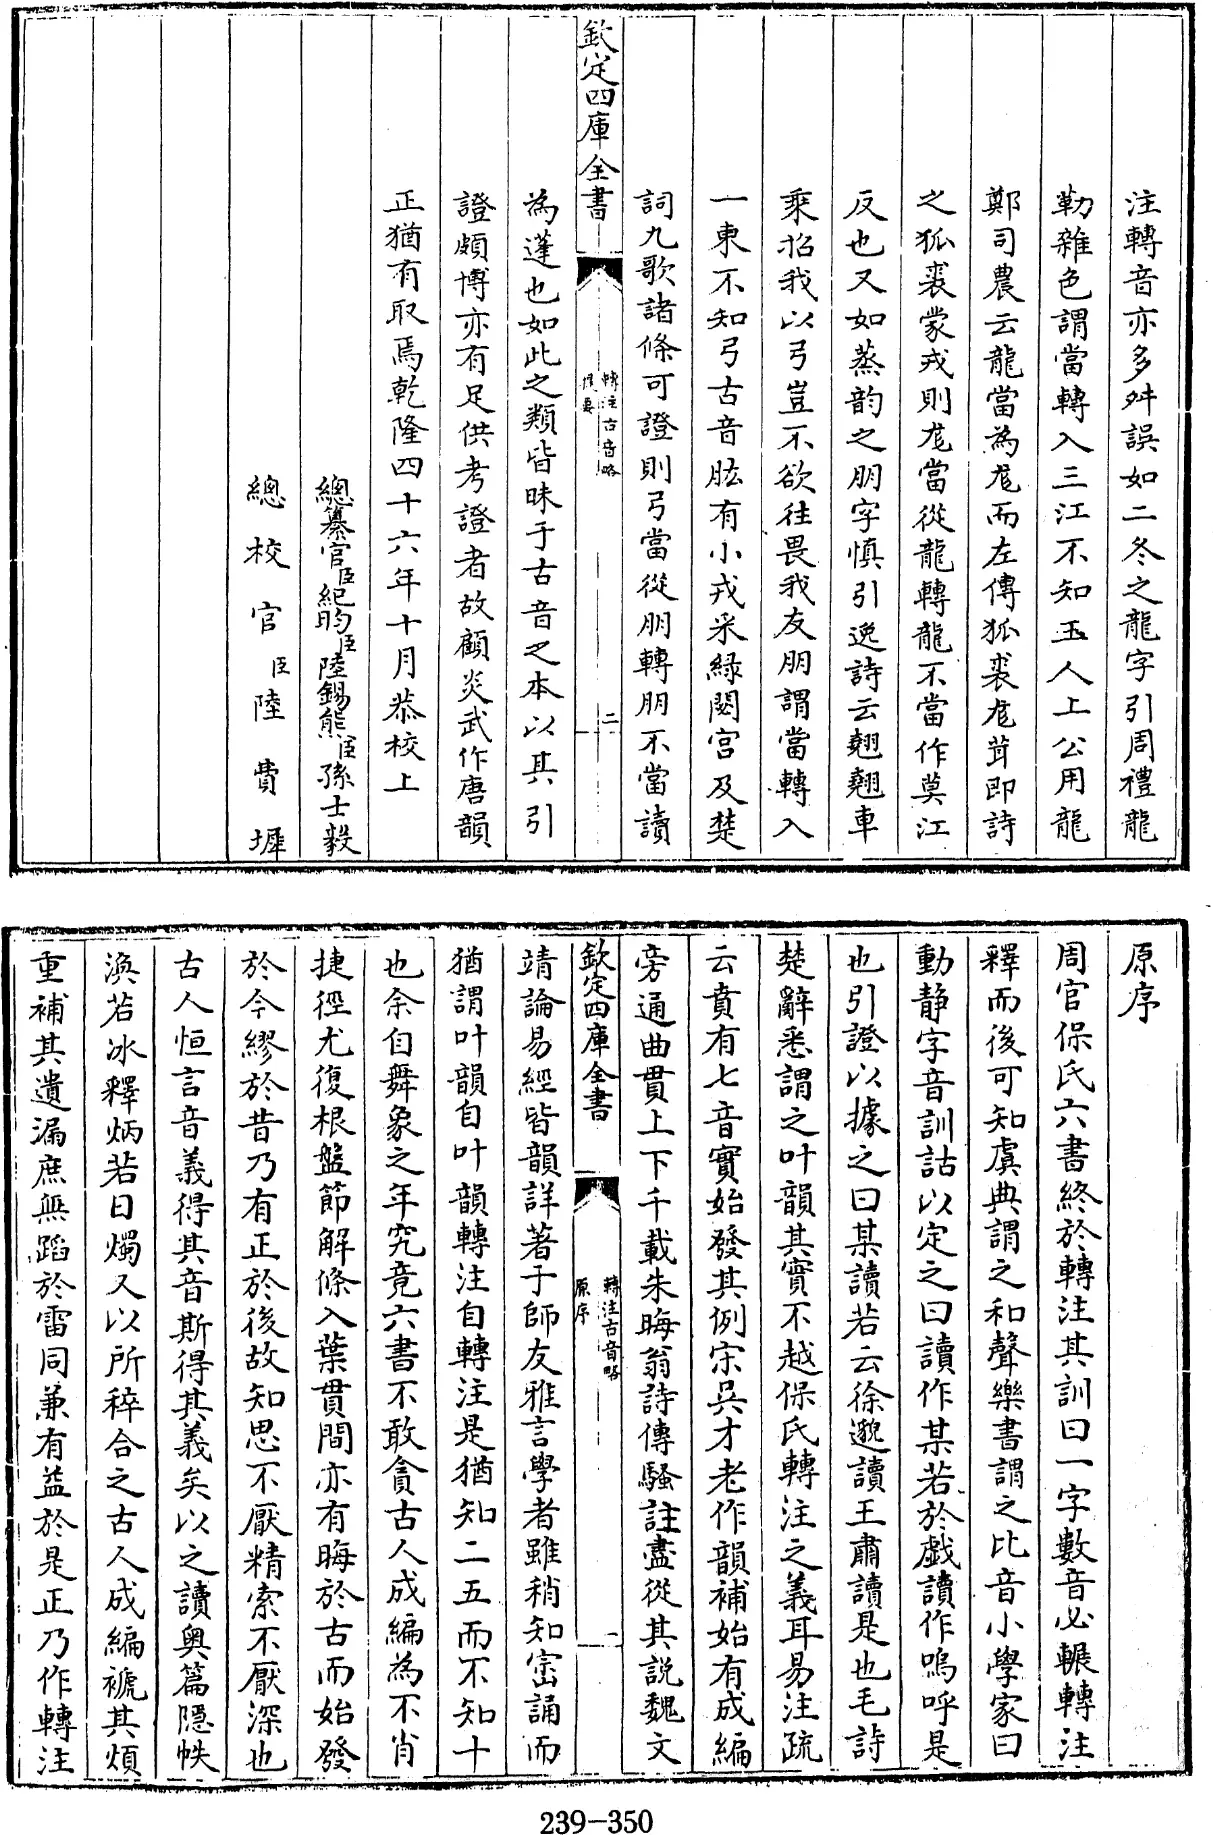 注轉音亦多舛誤如二冬之龍字引周禮龍
勒雜色謂當轉入三江不知玉人上公用龍
鄭司農云龍當為尨而左傳狐裘尨茸即詩
之狐裘蒙戎則尨當從龍轉龍不當作莫江
反也又如蒸韵之朋字慎引逸詩云翹翹車
乘招我以弓豈不欲往畏我友朋謂當轉入
一東不知弓古音肱有小戎采綠閟宮及楚
詞九歌諸條可證則弓當從朋轉朋不當讀
欽定四庫全書
轉注古音略
提要
二
為蓬也如此之類皆昧于古音之本以其引
證頗博亦有足供考證者故顧炎武作唐韻
正猶有取焉乾隆四十六年十月恭校上
總纂官臣紀昀臣陸錫熊臣孫士毅
總校官臣陸費墀
原序
周官保氏六書終於轉注其訓曰一字數音必輾轉注
釋而後可知虞典謂之和聲樂書謂之比音小學家曰
動靜字音訓詁以定之曰讀作某若於戲讀作嗚呼是
也引證以據之曰某讀若云徐邈讀王肅讀是也毛詩
楚辭悉謂之叶韻其實不越保氏轉注之義耳易注疏
云賁有七音實始發其例宗吳才老作韻補始有成編
旁通曲貫上下千載朱晦翁詩傳騷註盡從其說魏文
欽定四庫全書
轉注古音略
原序
一
靖論易經皆韻詳著于師友雅言學者雖稍知密誦而
猶謂叶韻自叶韻轉注自轉注是猶知二五而不知十
也余自舞象之年究竟六書不敢貪古人成編為不肖
捷徑尤復根盤節解條入葉貫間亦有晦於古而始發
於今繆於昔乃有正於後故知思不厭精索不厭深也
古人恒言音義得其音斯得其義矣以之讀奥篇隱帙
渙若冰釋炳若日燭又以所稡合之古人成編褫其煩
重補其遺漏庶無蹈於雷同兼有益於是正乃作轉注
239-350